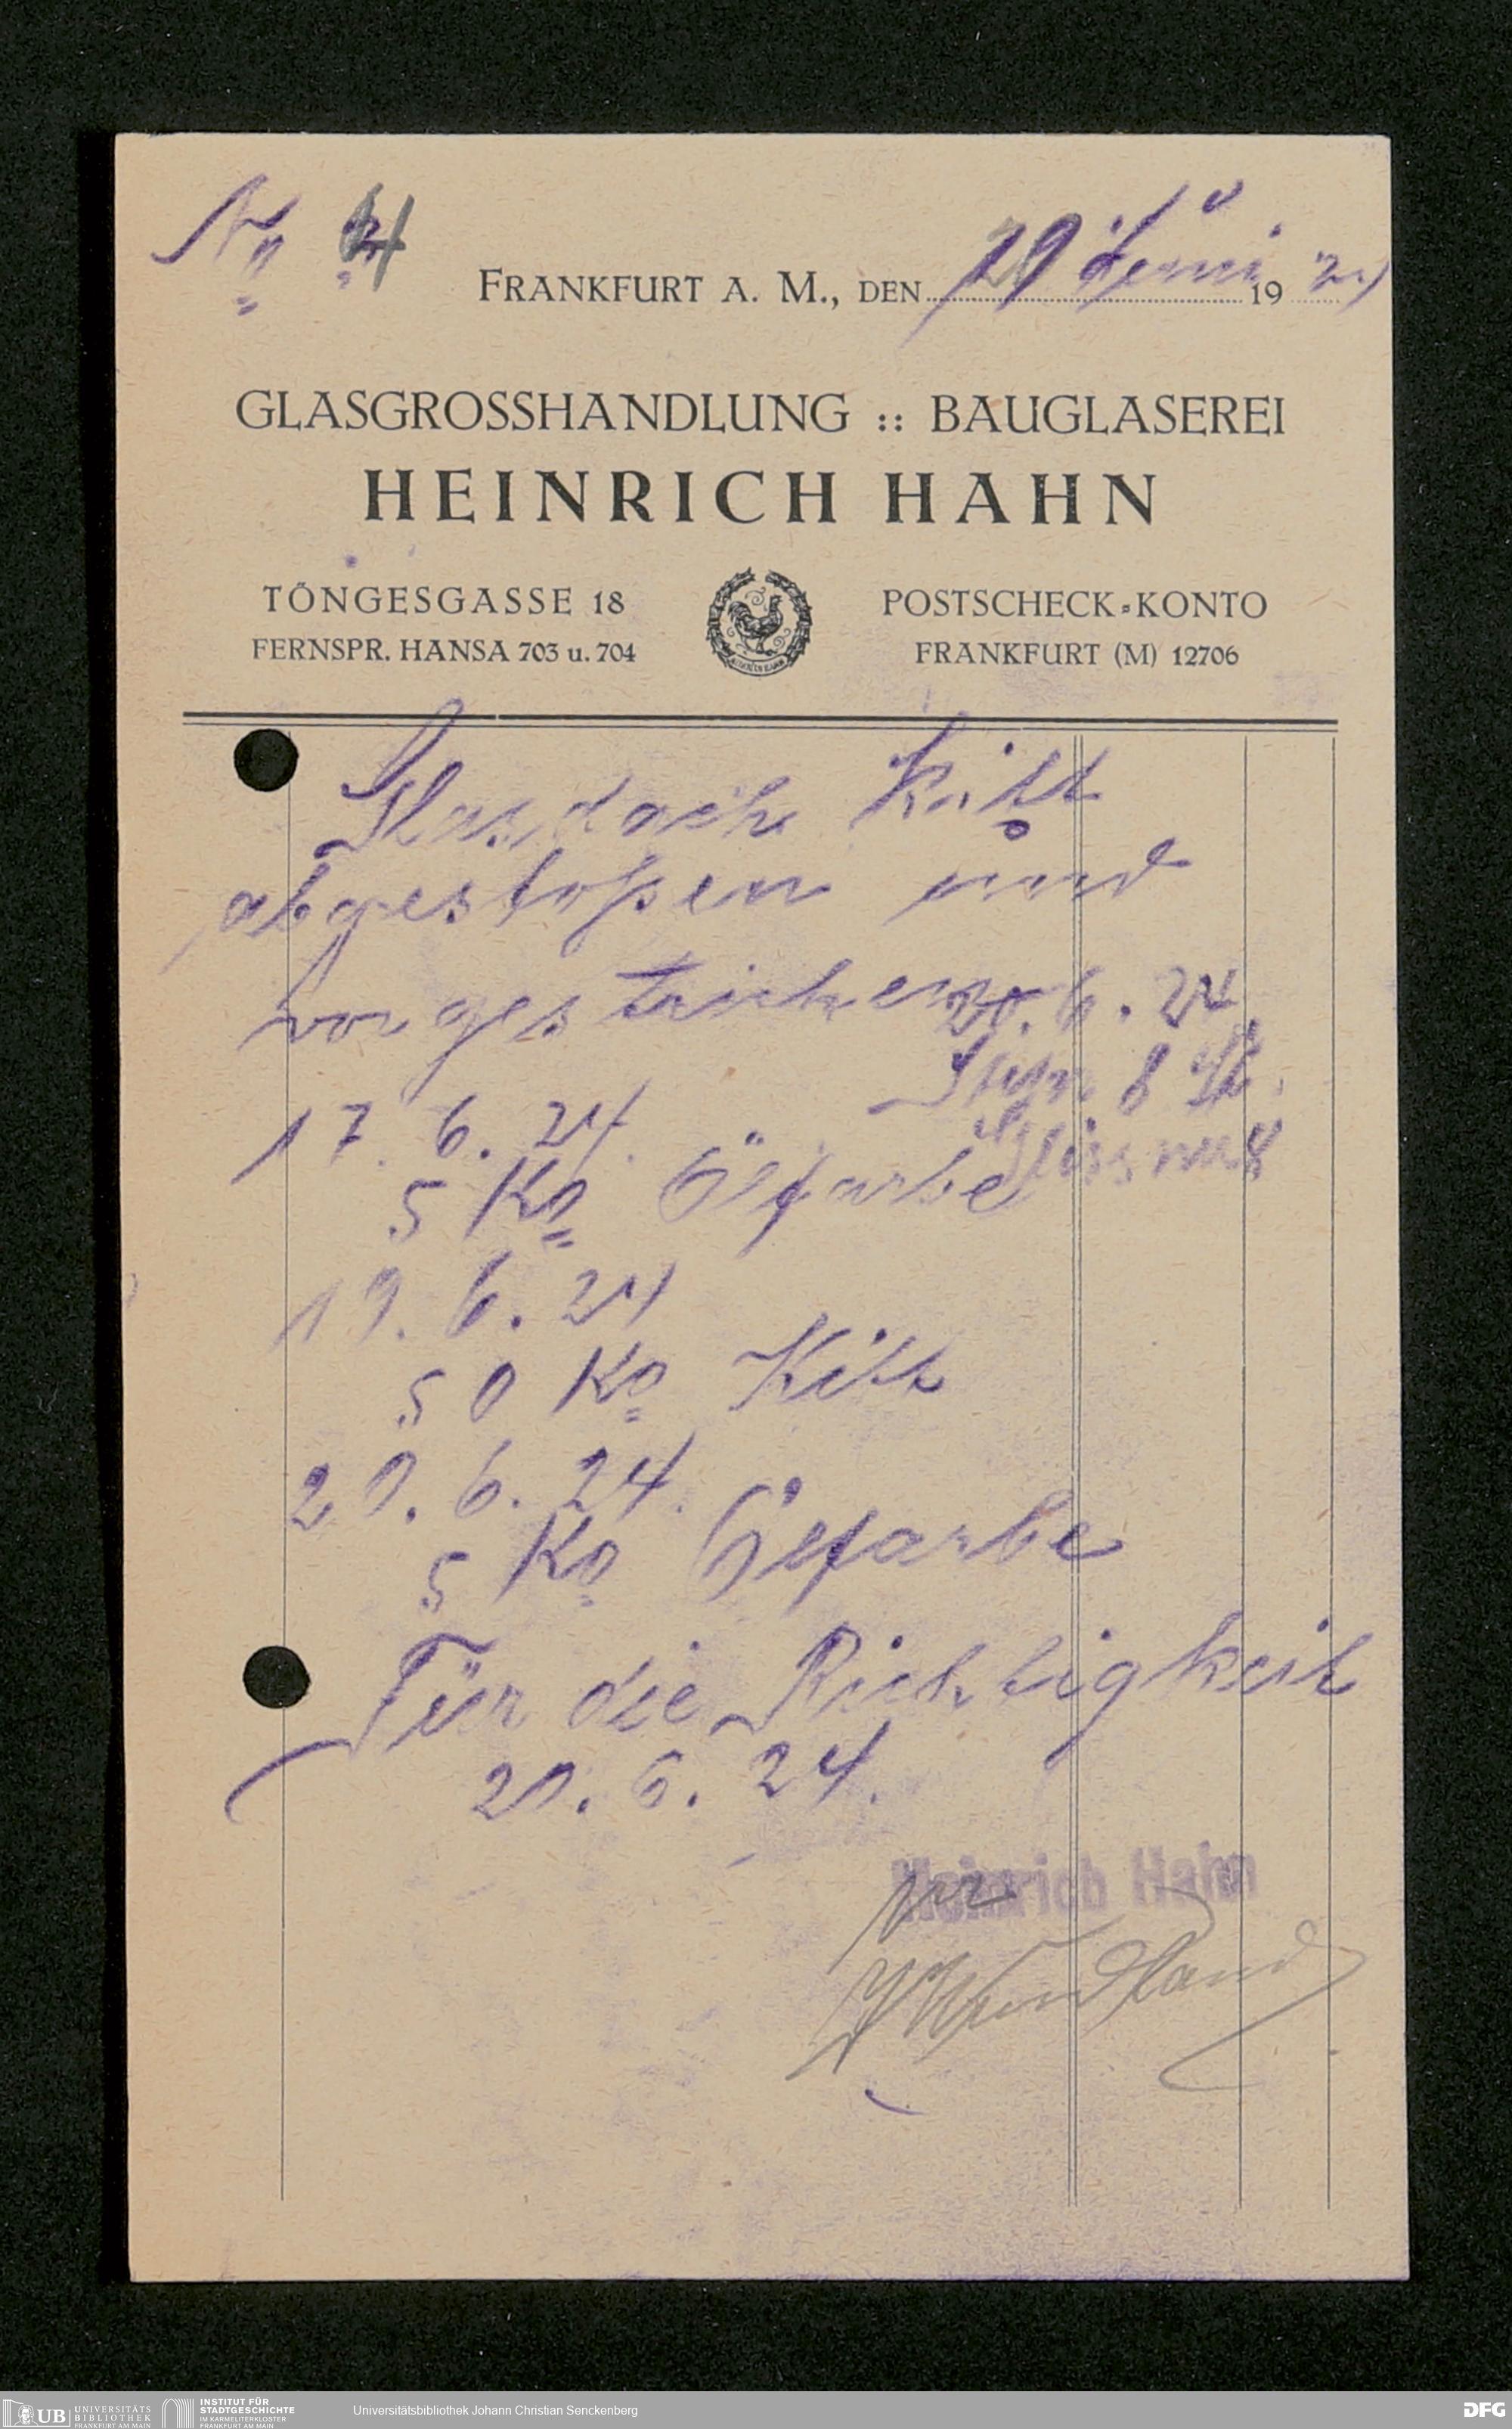 No 4
FRANKFURT A. M., DEN 20 Juni 1924
GLASGROSSHANDLUNG :: BAUGLASEREI
HEINRICH HAHN
TÖNGESGASSE 18
FERNSPR. HANSA 703 u. 704
POSTSCHECK-KONTO
FRANKFURT (M) 12706
Glasdach Kitt
abgestoßen und
vorgestrichen
20. 6. 24
8
17. 6. 24.
5 Ko Ölfarbe
19. 6. 24
50 Ko Kitt
20. 6. 24.
5 Ko Ölfarbe
Für die Richtigkeit
20. 6. 24.
Heinrich Hahn
UB UNIVERSITÄTS
BIBLIOTHEK
FRANKFURT AM MAIN
INSTITUT FÜR
STADTGESCHICHTE
IM KARMELITERKLOSTER
FRANKFURT AM MAIN
Universitätsbibliothek Johann Christian Senckenberg
DFG